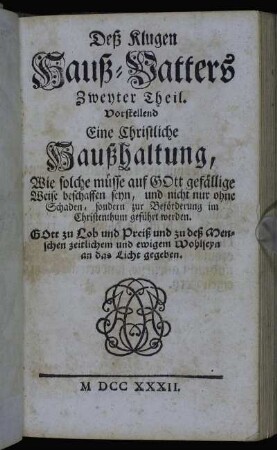 Deß Klugen
Hauß-Vatters
Zweyter Theil.
Vorstellend
Eine Christliche
Haußhaltung,
Wie solche müsse auf GOtt gefällige
Weise beschaffen seyn, und nicht nur ohne
Schaden, sondern zur Beförderung im
Christenthum geführt werden.
GOtt zu Lob und Preiß und zu deß Men-
schen zeitlichem und ewigem Wohlseyn
an das Licht gegeben.
M DCC XXXII.